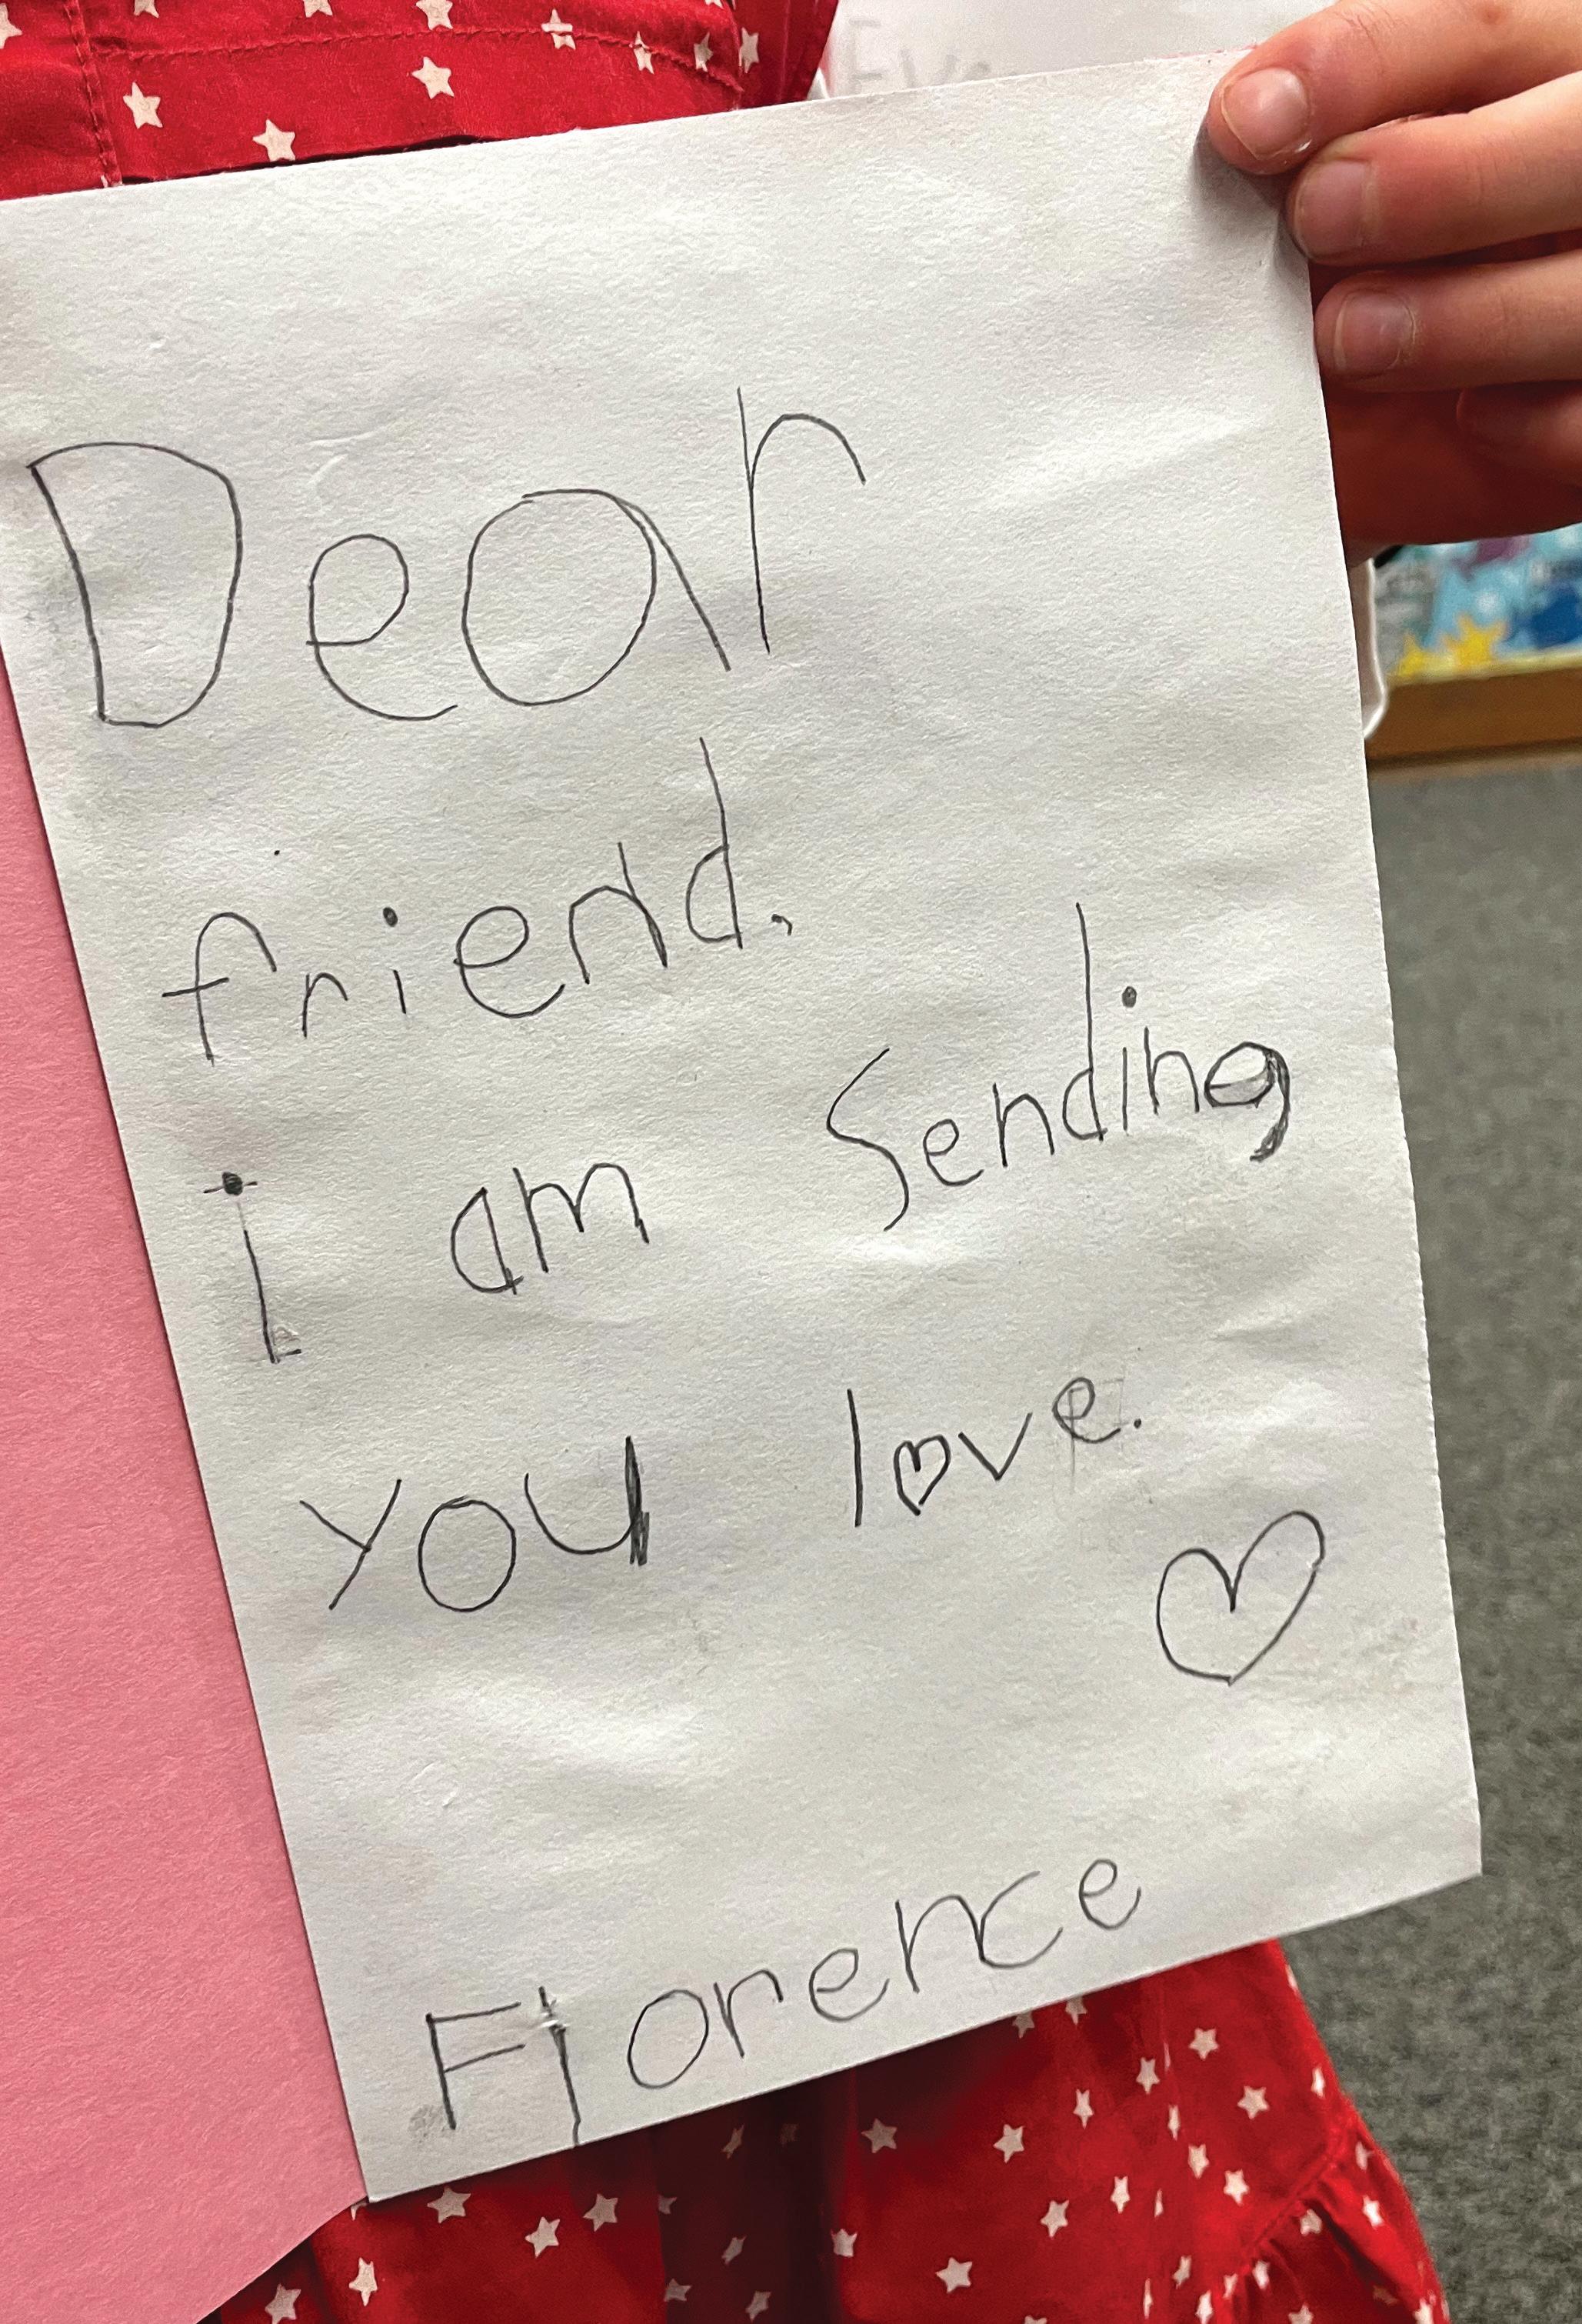 Dear
friend,
i am Sending
you love.
Florence